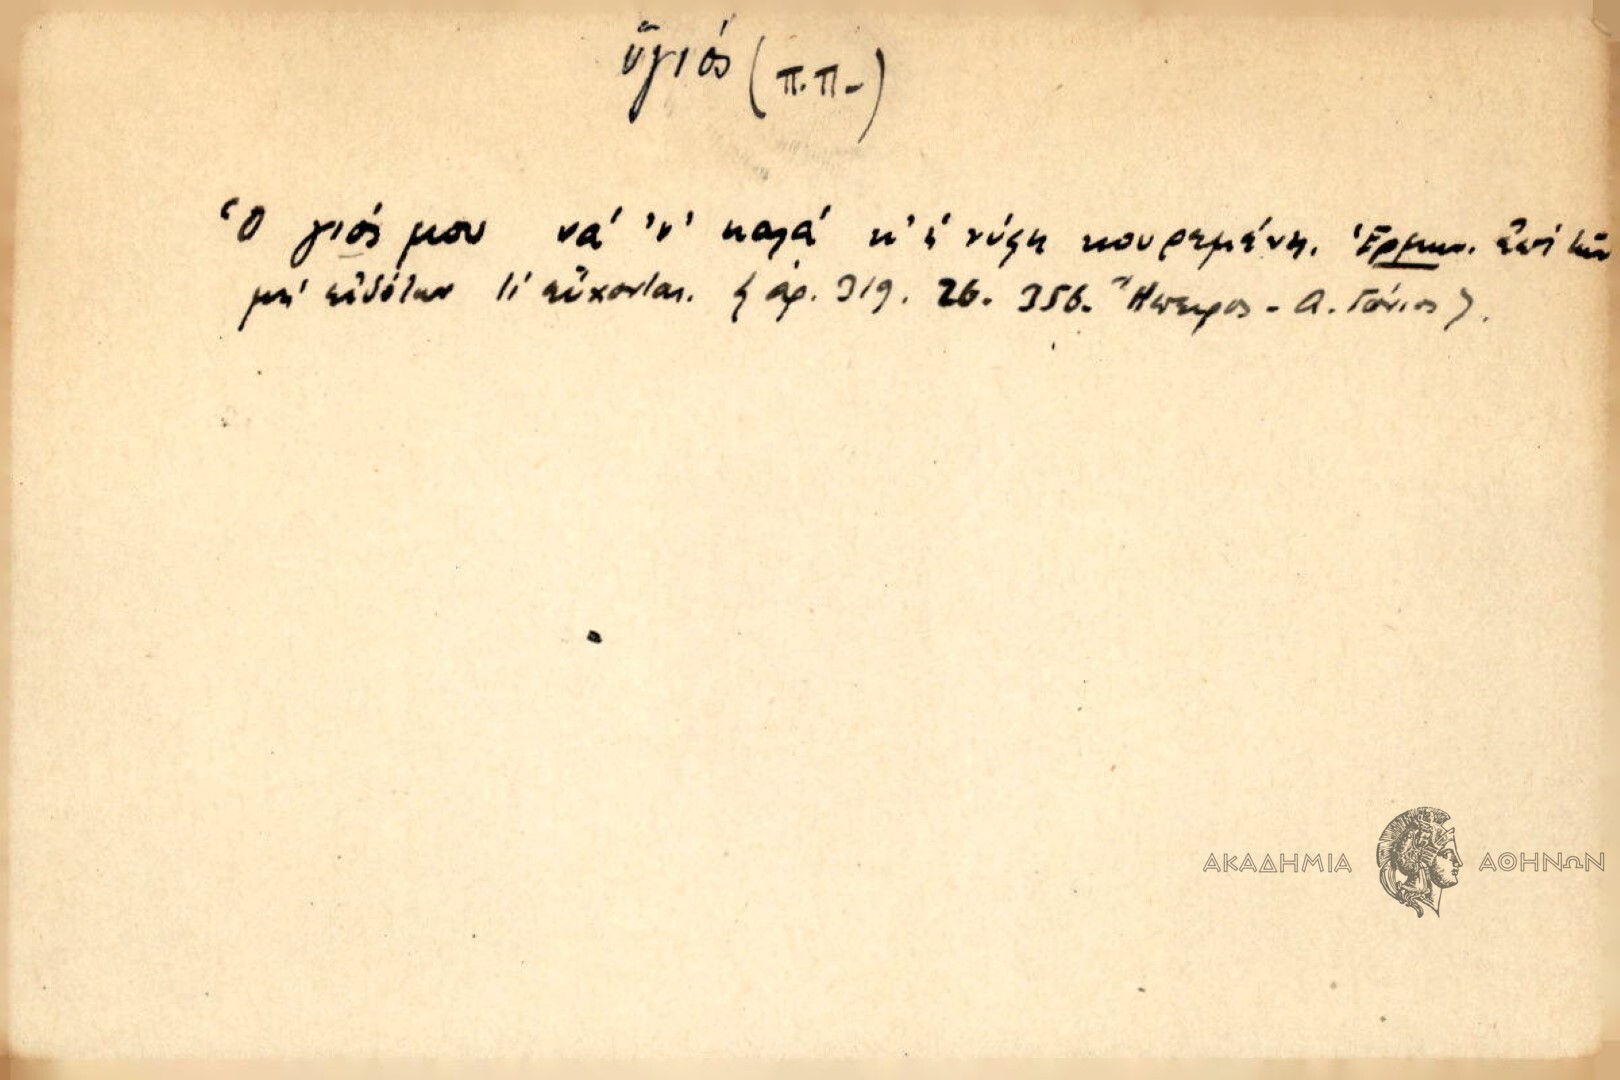 ὑγιός (π.π.)
Ὁ γιός μου νά 'ν' καλά κ' ἡ νύφη κουρεμένη. Ἑρμην. ἐπί τῶν
μή εἰδότων τί εὔχονται. ἀρ. 319. 26. 356. Ἤπειρος - Α. Γόνιος
ΑΚΑΔΗΜΙΑ ΑΘΗΝΩΝ